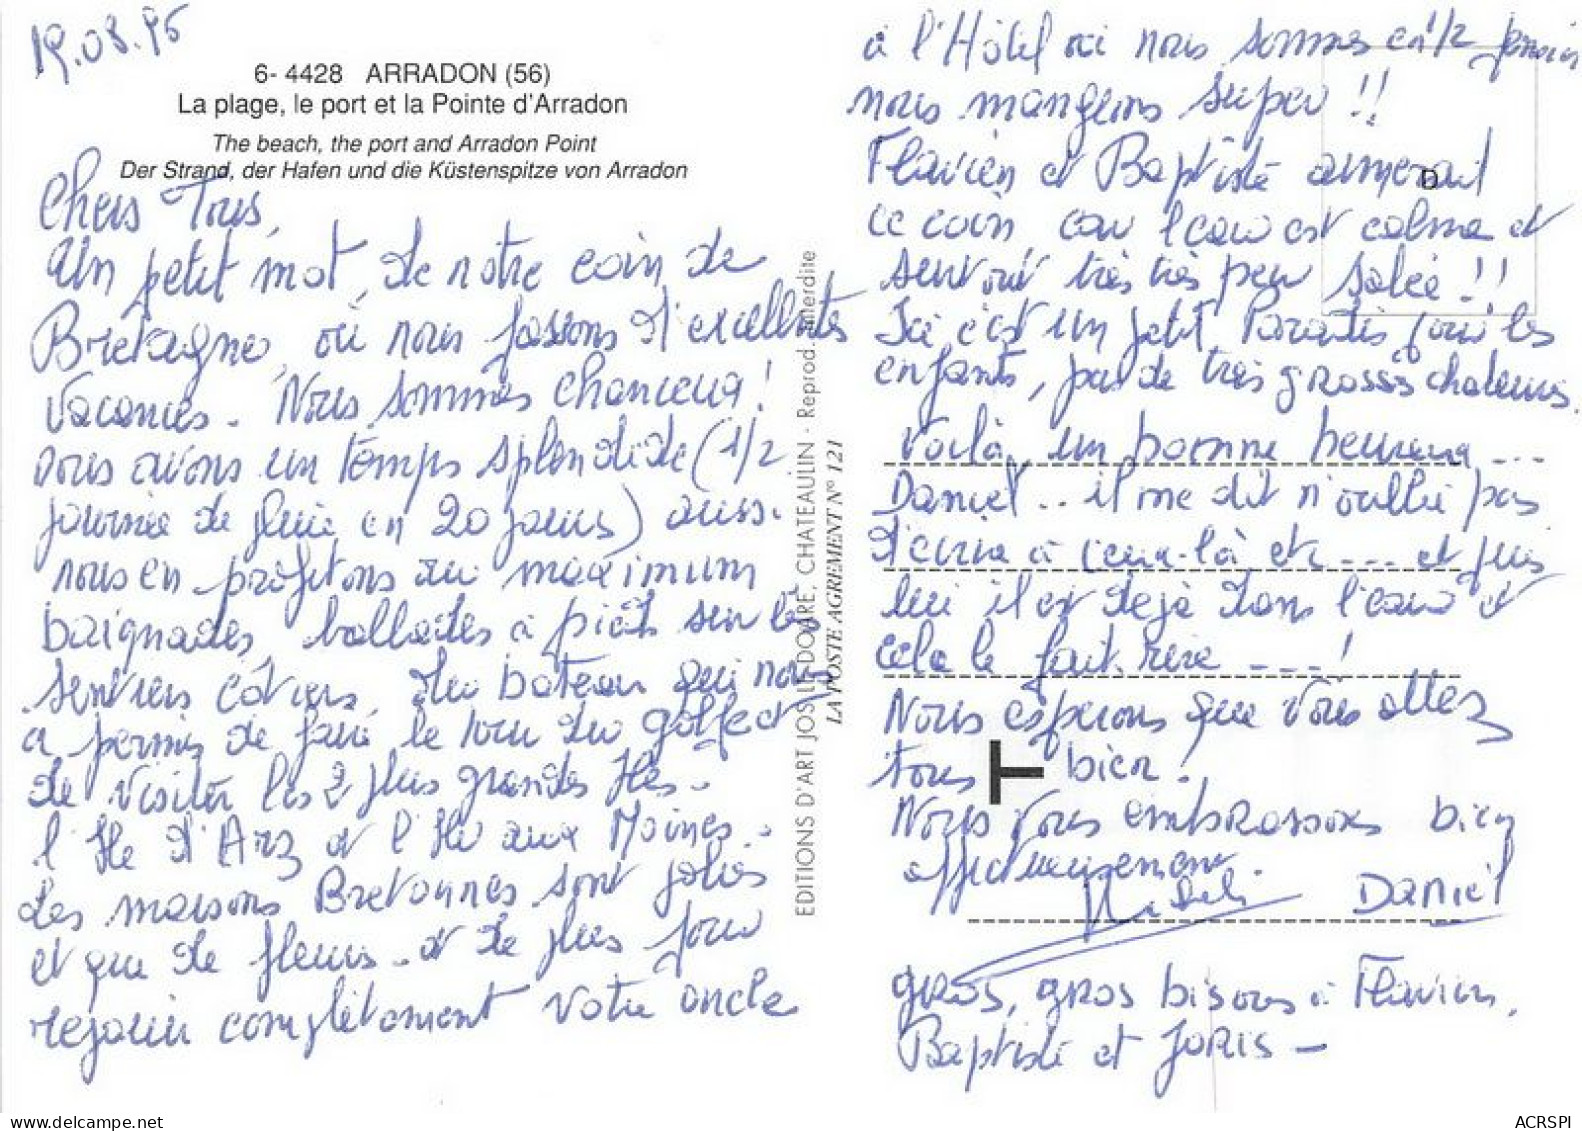 19.08.95
6- 4428 ARRADON (56)
La plage, le port et la Pointe d'Arradon
The beach, the port and Arradon Point
Der Strand, der Hafen und die Küstenspitze von Arradon
Chers Tous,
Un petit mot, de notre coin de
Bretagne, où nous passons d'excellentes
vacances. Nous sommes chanceux!
nous avons un temps splendide (1/2
journée de pluie en 20 jours) aussi
nous en profitons au maximum
baignades, ballades à pieds sur les
sentiers côtiers, du bateau qui nous
a permis de faire le tour du golfe et
de visiter les 2 plus grandes Iles.
l'Ile d'Arz et l'Ile aux Moines.
Les maisons Bretonnes sont jolies
et que de fleurs. et de plus pour
rejouir complètement votre oncle
à l'Hôtel où nous sommes en 1/2 pension
nous mangeons super!!
Flavien et Baptiste aimerait
ce coin, car l'eau est calme et
surtout très très peu salée!!
Ici c'est un petit Paradis pour les
enfants, pas de très grosses chaleurs.
Voilà, un homme heureux ...
Daniel .. il me dit n'oublie pas
d'écrire à ceux-là etc .... et puis
lui il est déjà dans l'eau et
cela le fait rire ....!
Nous espérons que vous allez
tous bien.
Nous vous embrassons bien
affectueusement.
Daniel
gros, gros bisous à Flavien,
Baptiste et JORIS -
D
T
EDITIONS D'ART JOS LE DOARE, CHATEAULIN - Reprod. interdite
LA POSTE AGREMENT N° 121
ACRSPI